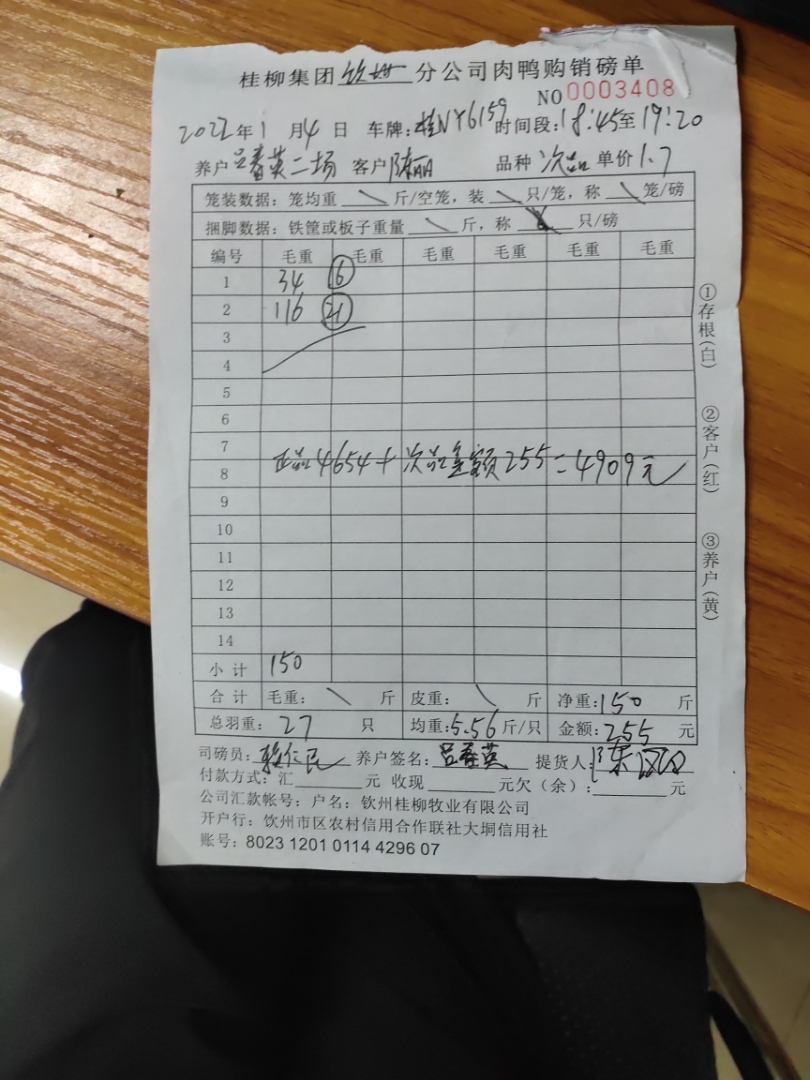 桂柳集团钦州分公司肉鸭购销磅单
NO 0003408
2022年1月4日 车牌:桂NY6159 时间段:18:45至19:20
养户 吕春英二场 客户 陈丽 品种 次品 单价 1.7
笼装数据: 笼均重 \ 斤/空笼, 装 \ 只/笼, 称 \ 笼/磅
捆脚数据: 铁筐或板子重量 \ 斤, 称 只/磅
编号 毛重 毛重 毛重 毛重 毛重 毛重
1 34 6
2 116 21
3
4
5
6
7
正品4654+次品金额255=4909元
8
9
10
11
12
13
14
小计 150
合计 毛重: \ 斤 皮重: \ 斤 净重:150 斤
总羽重: 27 只 均重:5.56斤/只 金额:255 元
司磅员: 养户签名: 吕春英 提货人:
付款方式: 汇 元 收现 元欠(余): 元
公司汇款帐号: 户名: 钦州桂柳牧业有限公司
开户行: 钦州市区农村信用合作联社大垌信用社
账号: 8023 1201 0114 4296 07
①存根(白)
②客户(红)
③养户(黄)